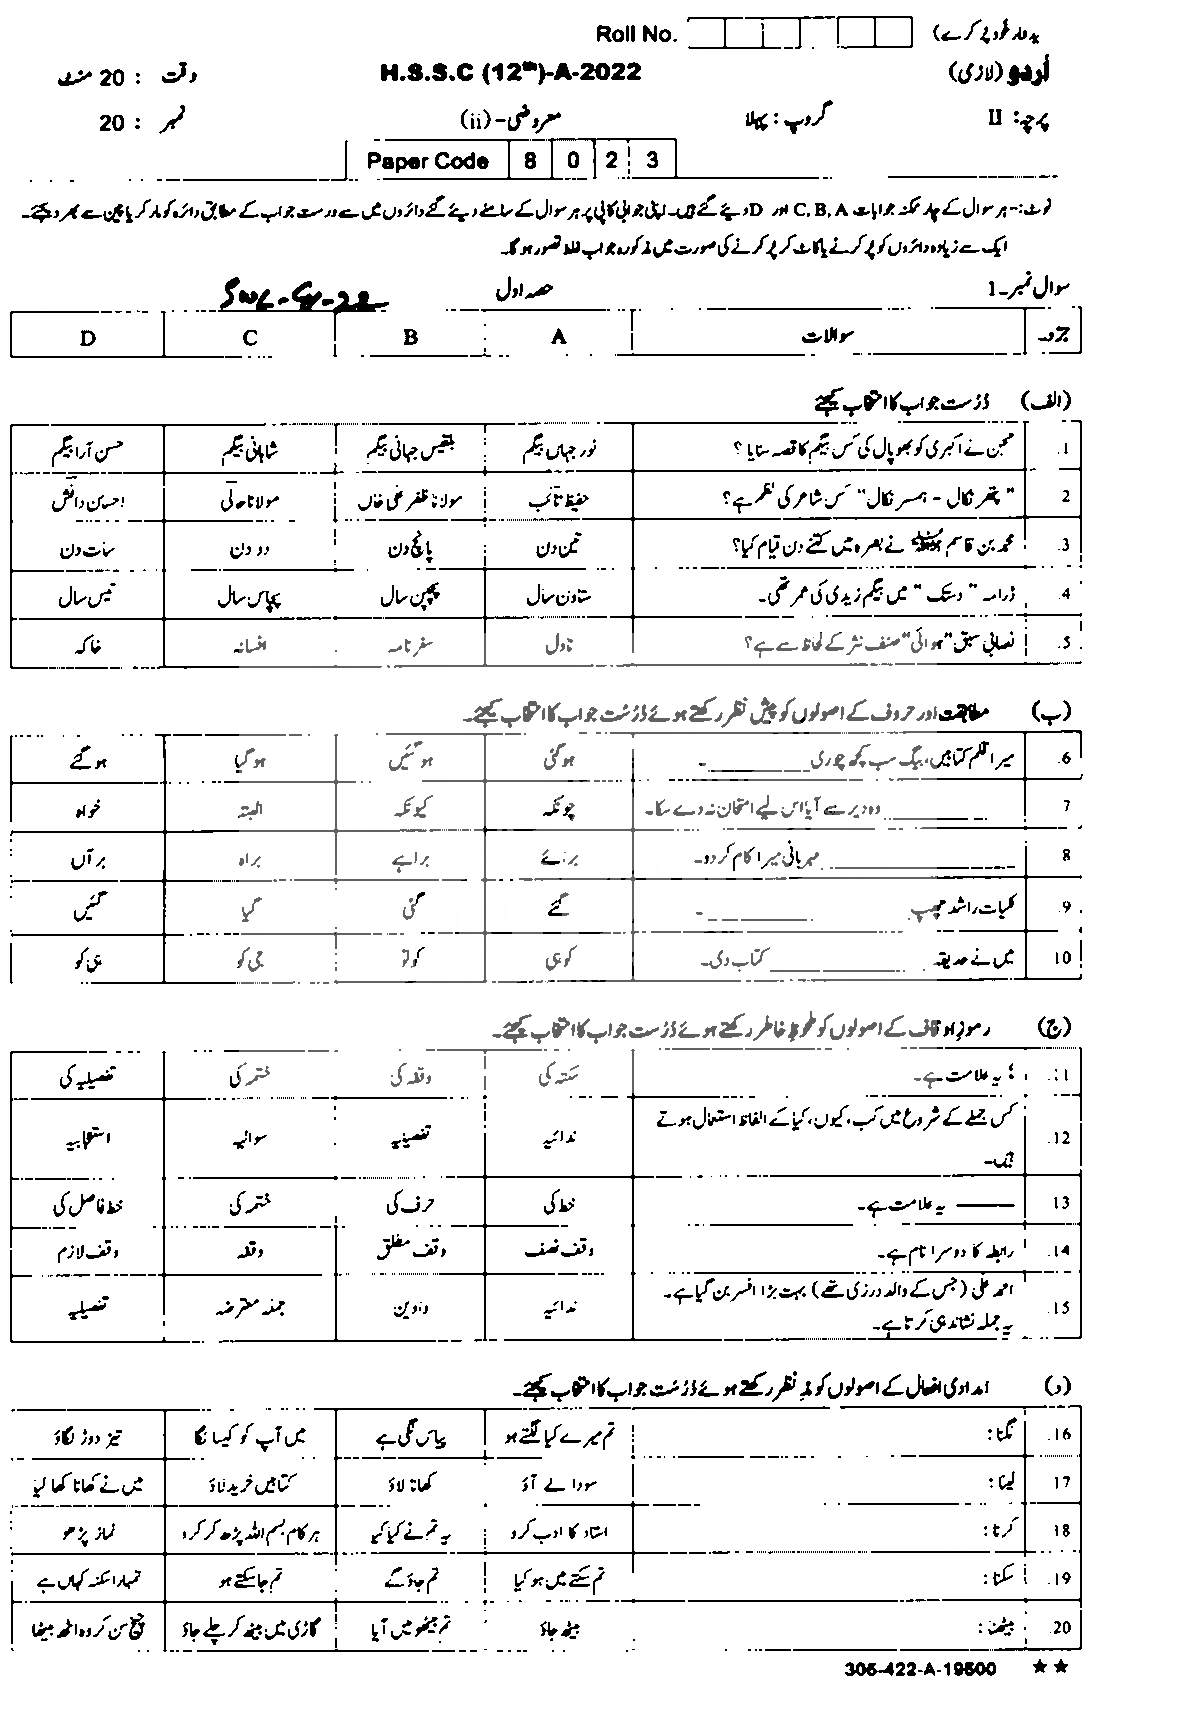 Roll No. (یہ فارم خود پُر کرے
اُردو (لازمی) H.S.S.C (12th)-A-2022 وقت : 20 منٹ
پرچہ: II گروپ : پہلا معروضی-(ii) نمبر : 20
Paper Code 8 0 2 3
نوٹ:- ہر سوال کے چار ممکنہ جوابات C, B, A اور D دیئے گئے ہیں۔ اپنی جوابی کاپی پر ہر سوال کے سامنے دیئے گئے دائروں میں سے درست جواب کے مطابق دائرہ کو مارکر یا پین سے بھر دیجئے۔
ایک سے زیادہ دائروں کو پُر کرنے یا کاٹ کر پُر کرنے کی صورت میں مذکورہ جواب غلط تصور ہو گا۔
سوال نمبر-1 حصہ اول
جزو سوالات A B C D
(الف) دُرست جواب کا انتخاب کیجئے
1. نے اکبری کو بھوپال کی کس بیگم کا قصہ سنایا ؟ نور جہاں بیگم بلقیس جہانی بیگم شاہانی بیگم حسن آرا بیگم
2 "پتھر نکال - ہمسر نکال" کس شاعر کی نظم ہے؟ حفیظ تائب مولانا ظفر علی خاں مولانا حالی احسان دانش
3. محمد بن قاسم نے بصرہ میں کتنے دن قیام کیا؟ تین دن پانچ دن دو دن سات دن
4. ڈرامہ "دستک" میں بیگم زیدی کی عمر تھی۔ ستاون سال پچپن سال پچاس سال تیس سال
5. نصابی سبق "ہوائی" صنف نثر کے لحاظ سے ہے؟ ناول سفرنامہ افسانہ خاکہ
(ب) مطابقت اور حروف کے اصولوں کو پیش نظر رکھتے ہوئے دُرست جواب کا انتخاب کیجئے۔
6. میرا قلم کتابیں، بیگ سب کچھ چوری ________ - ہو گئی ہو گئیں ہو گیا ہو گئے
7 ________ وہ دیر سے آیا اس لیے امتحان نہ دے سکا۔ چونکہ کیونکہ البتہ خواہ
8 ________ مہربانی میرا کام کر دو۔ برائے براہے براہ برآں
9. کلیات راشد چھپ ________ - گئے گئی گیا گئیں
10 میں نے حدیقہ ________ کتاب دی۔ کو ہی کو تو جی کو ہی کو
(ج) رموز اوقاف کے اصولوں کو ملحوظِ خاطر رکھتے ہوئے دُرست جواب کا انتخاب کیجئے۔
11. ؛ یہ علامت ہے۔ سکتہ کی وقفہ کی ختمہ کی تفصیلیہ کی
12. کس جملے کے شروع میں کب، کیوں، کیا کے الفاظ استعمال ہوتے
ہیں۔ ندائیہ تفصیلیہ سوالیہ استعجابیہ
13 —— یہ علامت ہے۔ خط کی حرف کی ختمہ کی خط فاصل کی
14. رابطہ کا دوسرا نام ہے۔ وقف نصف وقف مطلق وقفہ وقف لازم
15. احمد علی (جس کے والد درزی تھے) بہت بڑا افسر بن گیا ہے۔
یہ جملہ نشاندہی کرتا ہے۔ ندائیہ واوین جملہ معترضہ تفصیلیہ
(د) امدادی افعال کے اصولوں کو مدِ نظر رکھتے ہوئے دُرست جواب کا انتخاب کیجئے۔
16. لگنا: تم میرے کیا لگتے ہو پیاس لگی ہے میں آپ کو کیسا لگا تیز دوڑ لگاؤ
17 لینا: سودا لے آؤ کھانا لاؤ کتابیں خرید لاؤ میں نے کھانا کھا لیا
18 کرنا: استاد کا ادب کرو یہ تم نے کیا کیا ہر کام بسم اللہ پڑھ کر کرو نماز پڑھو
19. سکنا: تم سکتے میں ہو کیا تم جاؤ گے تم جا سکتے ہو تمہارا سکنہ کہاں ہے
20. بیٹھنا : بیٹھ جاؤ تم بیٹھو میں آیا گاڑی میں بیٹھ کر چلے جاؤ چیخ سن کر وہ اٹھ بیٹھا
305-422-A-19500 ★★